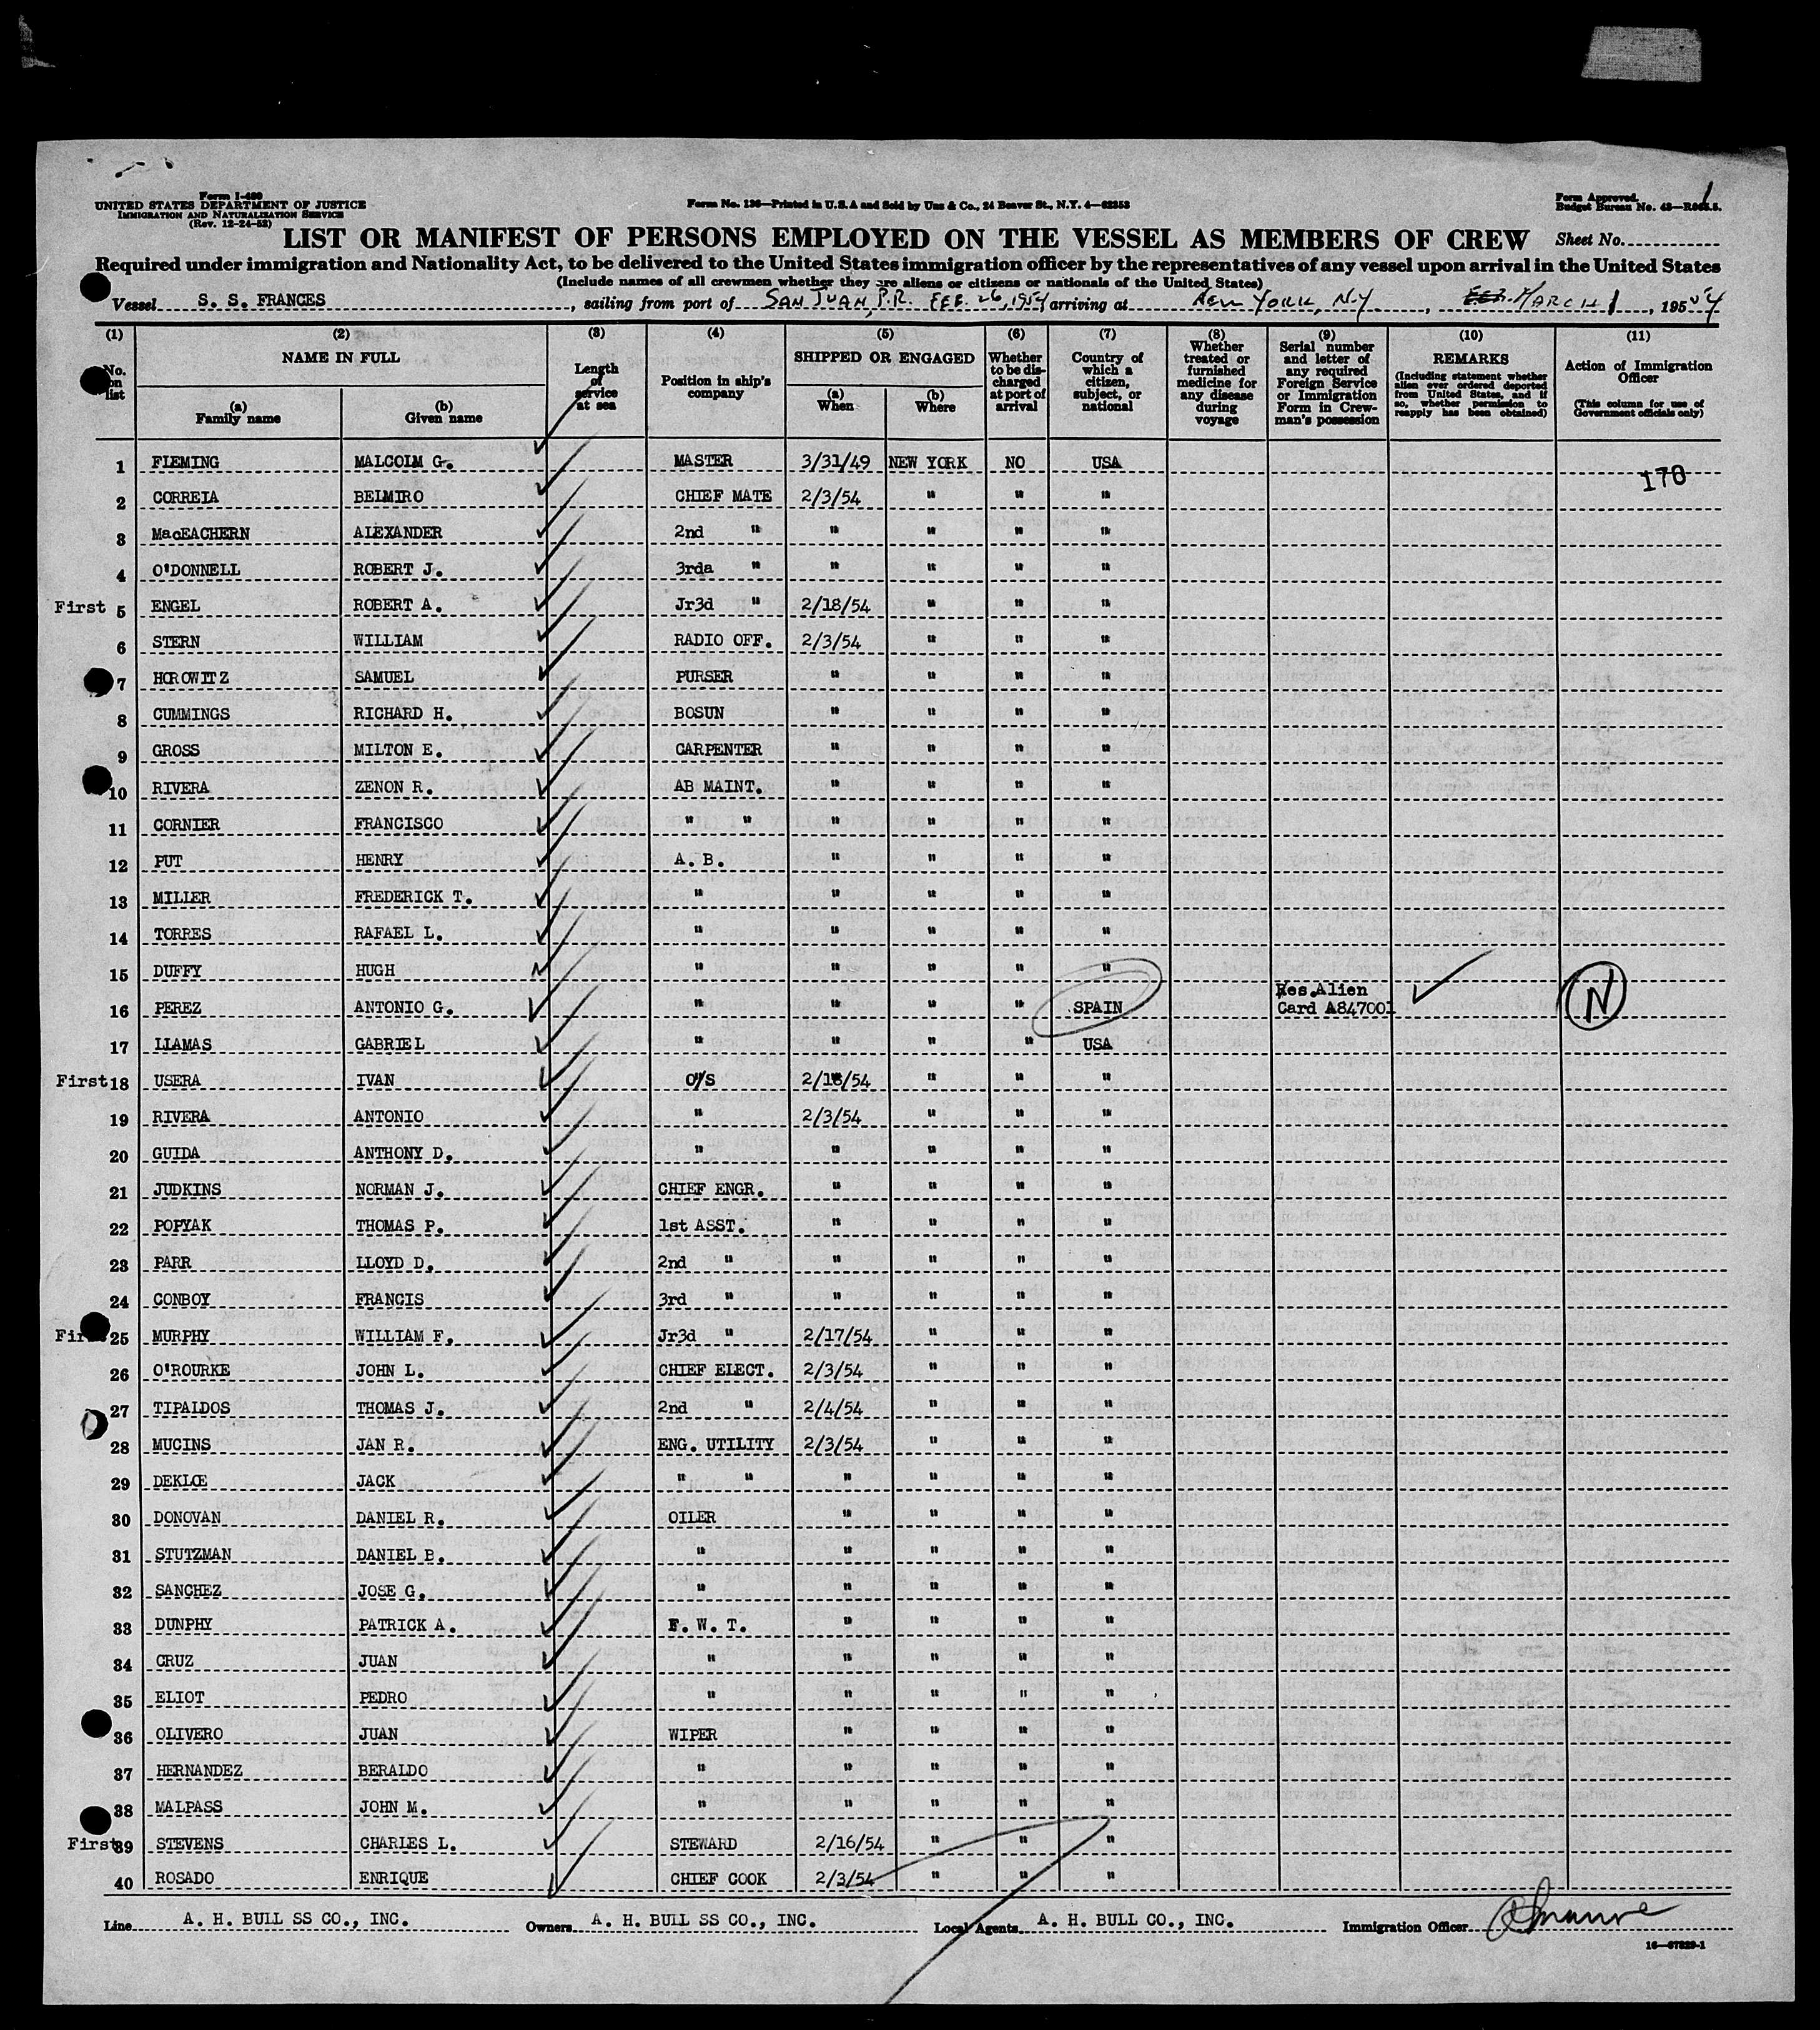 Form I-489
UNITED STATES DEPARTMENT OF JUSTICE
IMMIGRATION AND NATURALIZATION SERVICE
(Rev. 12-24-52)
Form No. 136—Printed in U.S.A and Sold by Unz & Co., 24 Beaver St., N.Y. 4—62353
Form Approved.
Budget Bureau No. 43—
1
LIST OR MANIFEST OF PERSONS EMPLOYED ON THE VESSEL AS MEMBERS OF CREW Sheet No.
Required under immigration and Nationality Act, to be delivered to the United States immigration officer by the representatives of any vessel upon arrival in the United States
(Include names of all crewmen whether they are aliens or citizens or nationals of the United States)
Vessel S. S. FRANCES, sailing from port of SAN JUAN, P.R. FEB. 26, 1954 arriving at NEW YORK, N.Y., FEB. MARCH 1, 1954
(1) (2) (3) (4) (5) (6) (7) (8) (9) (10) (11)
No. on list
NAME IN FULL
(a) Family name
(b) Given name
Length of service at sea
Position in ship's company
SHIPPED OR ENGAGED
(a) When
(b) Where
Whether to be discharged at port of arrival
Country of which a citizen, subject, or national
Whether treated or furnished medicine for any disease during voyage
Serial number and letter of any required Foreign Service or Immigration Form in Crewman's possession
REMARKS
(Including statement whether alien ever ordered deported from United States, and if so, whether permission to reapply has been obtained)
Action of Immigration Officer
(This column for use of Government officials only)
1 FLEMING MALCOLM G. MASTER 3/31/49 NEW YORK NO USA
170
2 CORREIA BELMIRO CHIEF MATE 2/3/54 " " "
3 MacEACHERN ALEXANDER 2nd " " " " "
4 O'DONNELL ROBERT J. 3rda " " " " "
First 5 ENGEL ROBERT A. Jr3d " 2/18/54 " " "
6 STERN WILLIAM RADIO OFF. 2/3/54 " " "
7 HOROWITZ SAMUEL PURSER " " " "
8 CUMMINGS RICHARD H. BOSUN " " " "
9 GROSS MILTON E. CARPENTER " " " "
10 RIVERA ZENON R. AB MAINT. " " " "
11 CORNIER FRANCISCO " " " " " "
12 PUT HENRY A. B. " " " "
13 MILLER FREDERICK T. " " " " "
14 TORRES RAFAEL L. " " " " "
15 DUFFY HUGH " " " " "
16 PEREZ ANTONIO G. " " " " SPAIN Res.Alien Card A847001 N
17 LLAMAS GABRIEL " " " " USA
First 18 USERA IVAN O/S 2/18/54 " " "
19 RIVERA ANTONIO " 2/3/54 " " "
20 GUIDA ANTHONY D. " " " " "
21 JUDKINS NORMAN J. CHIEF ENGR. " " " "
22 POPYAK THOMAS P. 1st ASST. " " " "
23 PARR LLOYD D. 2nd " " " " "
24 CONBOY FRANCIS 3rd " " " " "
First 25 MURPHY WILLIAM F. Jr3d " 2/17/54 " " "
26 O'ROURKE JOHN L. CHIEF ELECT. 2/3/54 " " "
27 TIPALDOS THOMAS J. 2nd " 2/4/54 " " "
28 MUCINS JAN R. ENG. UTILITY 2/3/54 " " "
29 DEKLOE JACK " " " " " "
30 DONOVAN DANIEL R. OILER " " " "
31 STUTZMAN DANIEL B. " " " " "
32 SANCHEZ JOSE G. " " " " "
33 DUNPHY PATRICK A. F. W. T. " " " "
34 CRUZ JUAN " " " " "
35 ELIOT PEDRO " " " " "
36 OLIVERO JUAN WIPER " " " "
37 HERNANDEZ BERALDO " " " " "
38 MALPASS JOHN M. " " " " "
First 39 STEVENS CHARLES L. STEWARD 2/16/54 " " "
40 ROSADO ENRIQUE CHIEF COOK 2/3/54 " " "
Line A. H. BULL SS CO., INC. Owners A. H. BULL SS CO., INC. Local Agents A. H. BULL CO., INC. Immigration Officer
16—67329-1